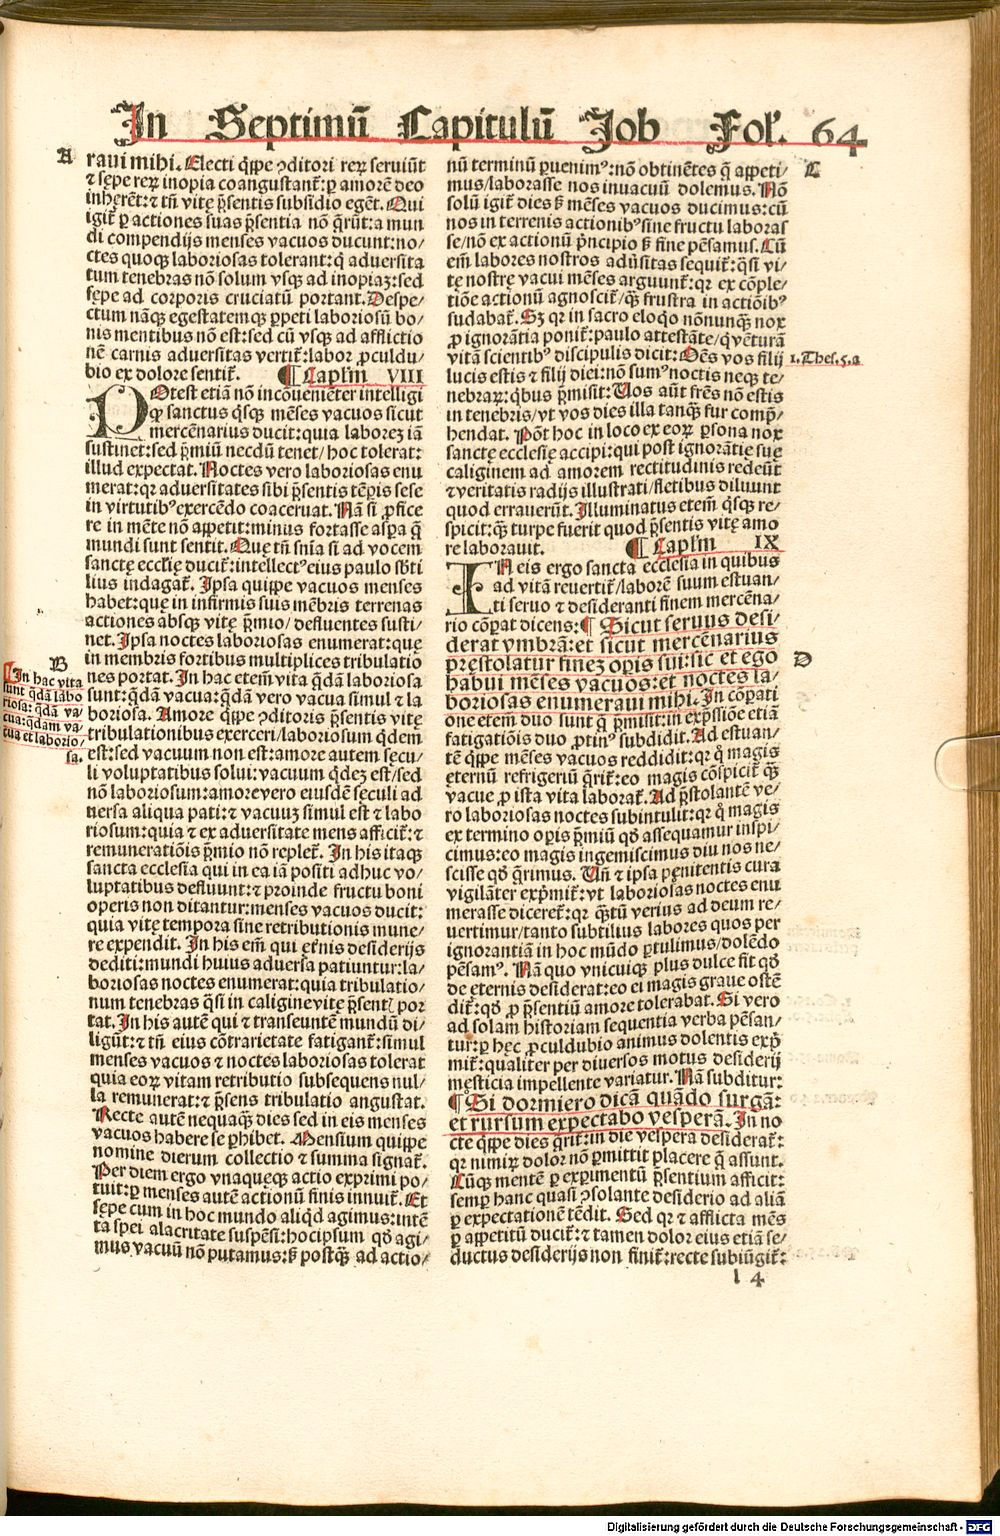 In Septimū Capitulū Job Fol'. 64
A
raui mihi. Electi q̄ꝑpe ↄditori reꝝ seruiūt
⁊ sępe reꝝ inopia coangustant̄: ꝑ amorē deo
inhęrēt: ⁊ tñ vitę p̄sentis subsidio egēt. Qui
igit̄ ꝑ actiones suas p̄sentia nō q̄rūt: a mun
di compendijs menses vacuos ducunt: no/
ctes quoqꝫ laboriosas tolerant: q̄ aduersita
tum tenebras nō solum vsqꝫ ad inopiaꝫ: sed
sępe ad corporis cruciatū portant. Despe/
ctum nāqꝫ egestatemqꝫ ꝑpeti laboriosū bo/
nis mentibus nō est: sed cū vsqꝫ ad afflictio
nē carnis aduersitas vertit̄: labor ꝓculdu/
bio ex dolore sentit̄. ¶ Caplm̄ VIII
POtest etiā nō incōueniēter intelligi
qꝙ sanctus q̄sqꝫ mēses vacuos sicut
mercēnarius ducit: quia laboreꝫ iā
sustinet: sed p̄miū necdū tenet/ hoc tolerat:
illud expectat. Noctes vero laboriosas enu
merat: qꝛ aduersitates sibi p̄sentis tēpis sese
in virtutibꝰ exercēdo coaceruat. Nā si ꝓfice
re in mēte nō appetit: minus fortasse aspa q̄
mundi sunt sentit. Quę tñ snīa si ad vocem
sanctę ecclię ducit̄: intellectꝰ eius paulo sb̄ti
lius indagat̄. Ipsa quippe vacuos menses
habet: quę in infirmis suis mēbris terrenas
actiones absqꝫ vitę p̄mio/ defluentes susti/
net. Ipsa noctes laboriosas enumerat: que
in membris fortibus multiplices tribulatio
nes portat. In hac etem̄ vita q̄dā laboriosa
sunt: q̄dā vacua: q̄dā vero vacua simul ⁊ la
boriosa. Amore q̄ꝑpe ↄditoris p̄sentis vitę
tribulationibus exerceri/ laboriosum q̄dem
est: sed vacuum non est: amore autem sęcu/
li voluptatibus solui: vacuum q̄deꝫ est/ sed
nō laboriosum: amore vero eiusdē sęculi ad
uersa aliqua pati: ⁊ vacuuꝫ simul est ⁊ labo
riosum: quia ⁊ ex aduersitate mens afficit̄: ⁊
remuneratiōis p̄mio nō replet̄. In his itaqꝫ
sancta ecclesia qui in ea iā positi adhuc vo/
luptatibus defluunt: ⁊ proinde fructu boni
operis non ditantur: menses vacuos ducit:
quia vitę tempora sine retributionis mune/
re expendit. In his em̄ qui et̄nis desiderijs
dediti: mundi huius aduersa patiuntur: la/
boriosas noctes enumerat: quia tribulatio/
num tenebras q̄si in caligine vitę p̄sent̄ por
tat. In his autē qui ⁊ transeuntē mundū di/
ligūt: ⁊ tñ eius cōtrarietate fatigant̄: simul
menses vacuos ⁊ noctes laboriosas tolerat
quia eoꝝ vitam retributio subsequens nul/
la remunerat: ⁊ p̄sens tribulatio angustat.
Recte autē nequaq̄ꝫ dies sed in eis menses
vacuos habere se ꝑhibet. Mensium quippe
nomine dierum collectio ⁊ summa signat̄.
Per diem ergo vnaquęqꝫ actio exprimi po/
tuit: ꝑ menses autē actionū finis innuit̄. Et
sępe cum in hoc mundo aliqd̄ agimus: intē
ta spei alacritate suspēsi: hocipsum qd̄ agi/
mus vacuū nō putamus: ß postq̄ꝫ ad actio/
B
¶In hac vita
sunt q̄dā labo
riosa: q̄dā va/
cua: q̄dam va/
cua et laborio/
sa.
nū terminū ꝑuenimꝰ: nō obtinētes q̄ appeti/
mus/ laborasse nos inuacuū dolemus. Nō
solū igit̄ dies ß mēses vacuos ducimus: cū
nos in terrenis actionibꝰ sine fructu laboras
se/ nō ex actionū p̄ncipio ß fine pēsamus. Cū
em̄ labores nostros aduͥsitas sequit̄: q̄si vi/
tę nostrę vacui mēses arguunt̄: qꝛ ex cōple/
tiōe actionū agnoscit̄/ q̄ꝫ frustra in actiōibꝰ
sudabat̄. Sꝫ qꝛ in sacro eloq̄o nōnunq̄ꝫ nox
ꝓ ignorātia ponit̄: paulo attestāte/ q̄ vēturā
vitā scientibꝰ discipulis dicit: Oēs vos filij
lucis estis ⁊ filij diei: nō sumꝰ noctis neqꝫ te/
nebraꝝ: q̄bus p̄misit: Uos aūt frēs nō estis
in tenebris/ vt vos dies illa tanq̄ꝫ fur comp̄/
hendat. Pōt hoc in loco ex eoꝝ ꝑsona nox
sanctę ecclesię accipi: qui post ignorātię suę
caliginem ad amorem rectitudinis redeūt
⁊ veritatis radijs illustrati/ fletibus diluunt
quod errauerūt. Illuminatus etem̄ q̄sqꝫ re/
spicit: q̄ꝫ turpe fuerit quod p̄sentis vitę amo
re laborauit. ¶ Caplm̄ IX
IN eis ergo sancta ecclesia in quibus
ad vitā reuertit̄/ laborē suum estuan/
ti seruo ⁊ desideranti finem mercēna/
rio cōꝑat dicens: ¶ Sicut seruus desi/
derat vmbrā: et sicut mercēnarius
pręstolatur fineꝫ opis sui: sic et ego
habui mēses vacuos: et noctes la/
boriosas enumeraui mihi. In cōꝑati
one etem̄ duo sunt q̄ p̄misit: in exp̄ssiōe etiā
fatigatiōis duo ꝓtinꝰ subdidit. Ad estuan/
tē q̄ꝑpe mēses vacuos reddidit: qꝛ q̊ magis
ęternū refrigeriū q̄rit̄: eo magis cōspicit̄ q̄ꝫ
vacue ꝓ ista vita laborat̄. Ad p̄stolantē ve/
ro laboriosas noctes subintulit: qꝛ q̊ magis
ex termino opis p̄miū qd̄ assequamur inspi/
cimus: eo magis ingemiscimus diu nos ne/
scisse qd̄ q̄rimus. Un̄ ⁊ ipsa pęnitentis cura
vigilāter exp̄mit̄: vt laboriosas noctes enu
merasse diceret̄: qꝛ q̄ꝫtū verius ad deum re/
uertimur/ tanto subtilius labores quos per
ignorantiā in hoc mūdo ꝑtulimus/ dolēdo
pēsamꝰ. Nā quo vnicuiqꝫ plus dulce fit qd̄
de ęternis desiderat: eo ei magis graue ostē
dit̄: qd̄ ꝓ p̄sentiū amore tolerabat. Si vero
ad solam historiam sequentia verba pēsan/
tur: ꝑ hęc ꝓculdubio animus dolentis exp̄
mit̄: qualiter per diuersos motus desiderij
męsticia impellente variatur. Nā subditur:
¶ Si dormiero dicā quādo surgā:
et rursum expectabo vesperā. In no
cte q̄ꝑpe dies q̄rit̄: in die vespera desiderat̄:
qꝛ nimiꝝ dolor nō ꝑmittit placere q̄ assunt.
Cūqꝫ mentē ꝑ experimentū p̄sentium afficit:
semꝑ hanc quasi ↄsolante desiderio ad aliā
ꝑ expectationē tēdit. Sed qꝛ ⁊ afflicta mēs
ꝑ appetitū ducit̄: ⁊ tamen dolor eius etiā se/
ductus desiderijs non finit̄: recte subiūgit̄:
C
1. Thes. 5. a
D
l 4
Digitalisierung gefördert durch die Deutsche Forschungsgemeinschaft - DFG